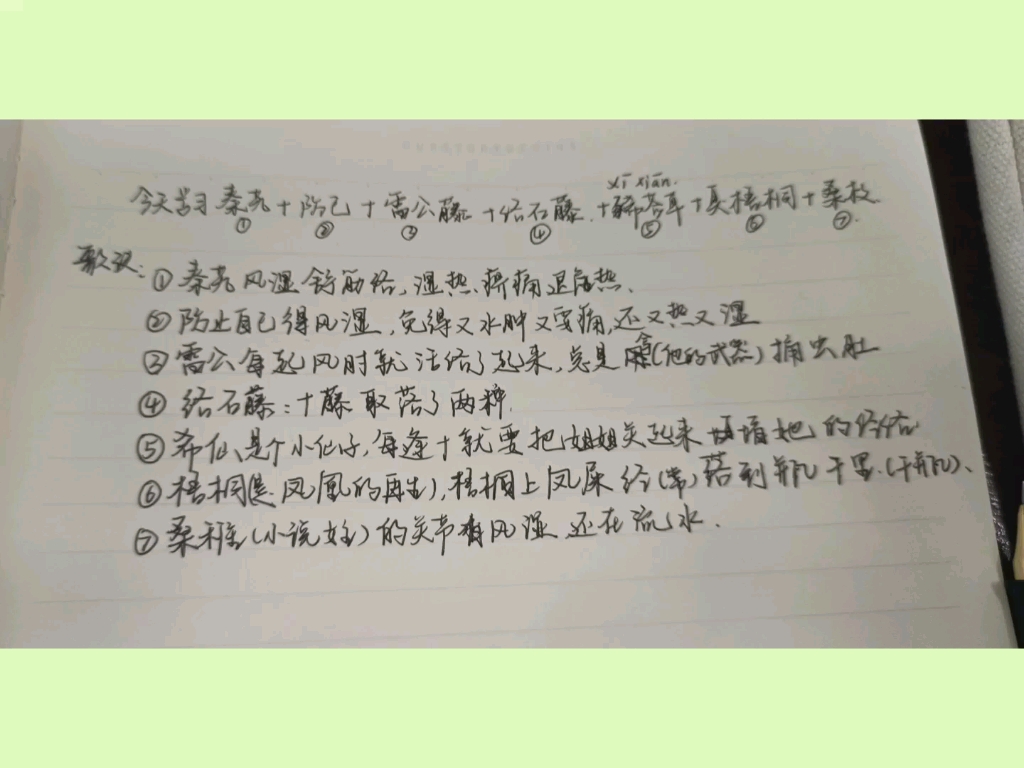 xī xiān.
今天学习 秦艽+防己+雷公藤+络石藤.+豨莶草+臭梧桐+桑枝
① ② ③ ④ ⑤ ⑥ ⑦.
歌诀: ① 秦艽风湿舒筋络, 湿热、痹痛退虚热.
② 防止自己得风湿, 免得又水肿又要痛, 还又热又湿
③ 雷公每起风时就活络了起来, 总是拿(他的武器)捅虫肚
④ 络石藤: 十藤取落了两种.
⑤ 希仙是个小仙子, 每逢十就要把姐姐关起来 堵她的经络
⑥ 梧桐(是凤凰的再生), 梧桐上凤屎经(常)落到瓶干里.(干瓶)、
⑦ 桑稚(小说女主)的关节有风湿 还在流水.